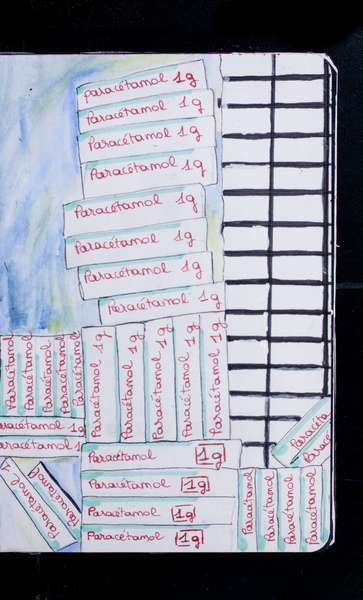 Paracétamol 1g
Paracétamol 1g
Paracétamol 1g
Paracétamol 1g
Paracétamol 1g
Paracétamol 1g
Paracétamol 1g
Paracétamol 1g
Paracétamol
Paracétamol
Paracétamol
Paracétamol
Paracétamol 1g
Paracétamol 1g
Paracétamol 1g
Paracétamol 1g
Paracétamol 1g
Paracétamol 1g
Paracétamol 1
Paracéta
Paracé
Paracétamol 1g
Paracétamol 1g
Paracétamol 1g
Paracétamol 1g
Paracétamol 1
Paracétamol
Paracétamol
Paracétamol
Paracétamol
Paracétamol